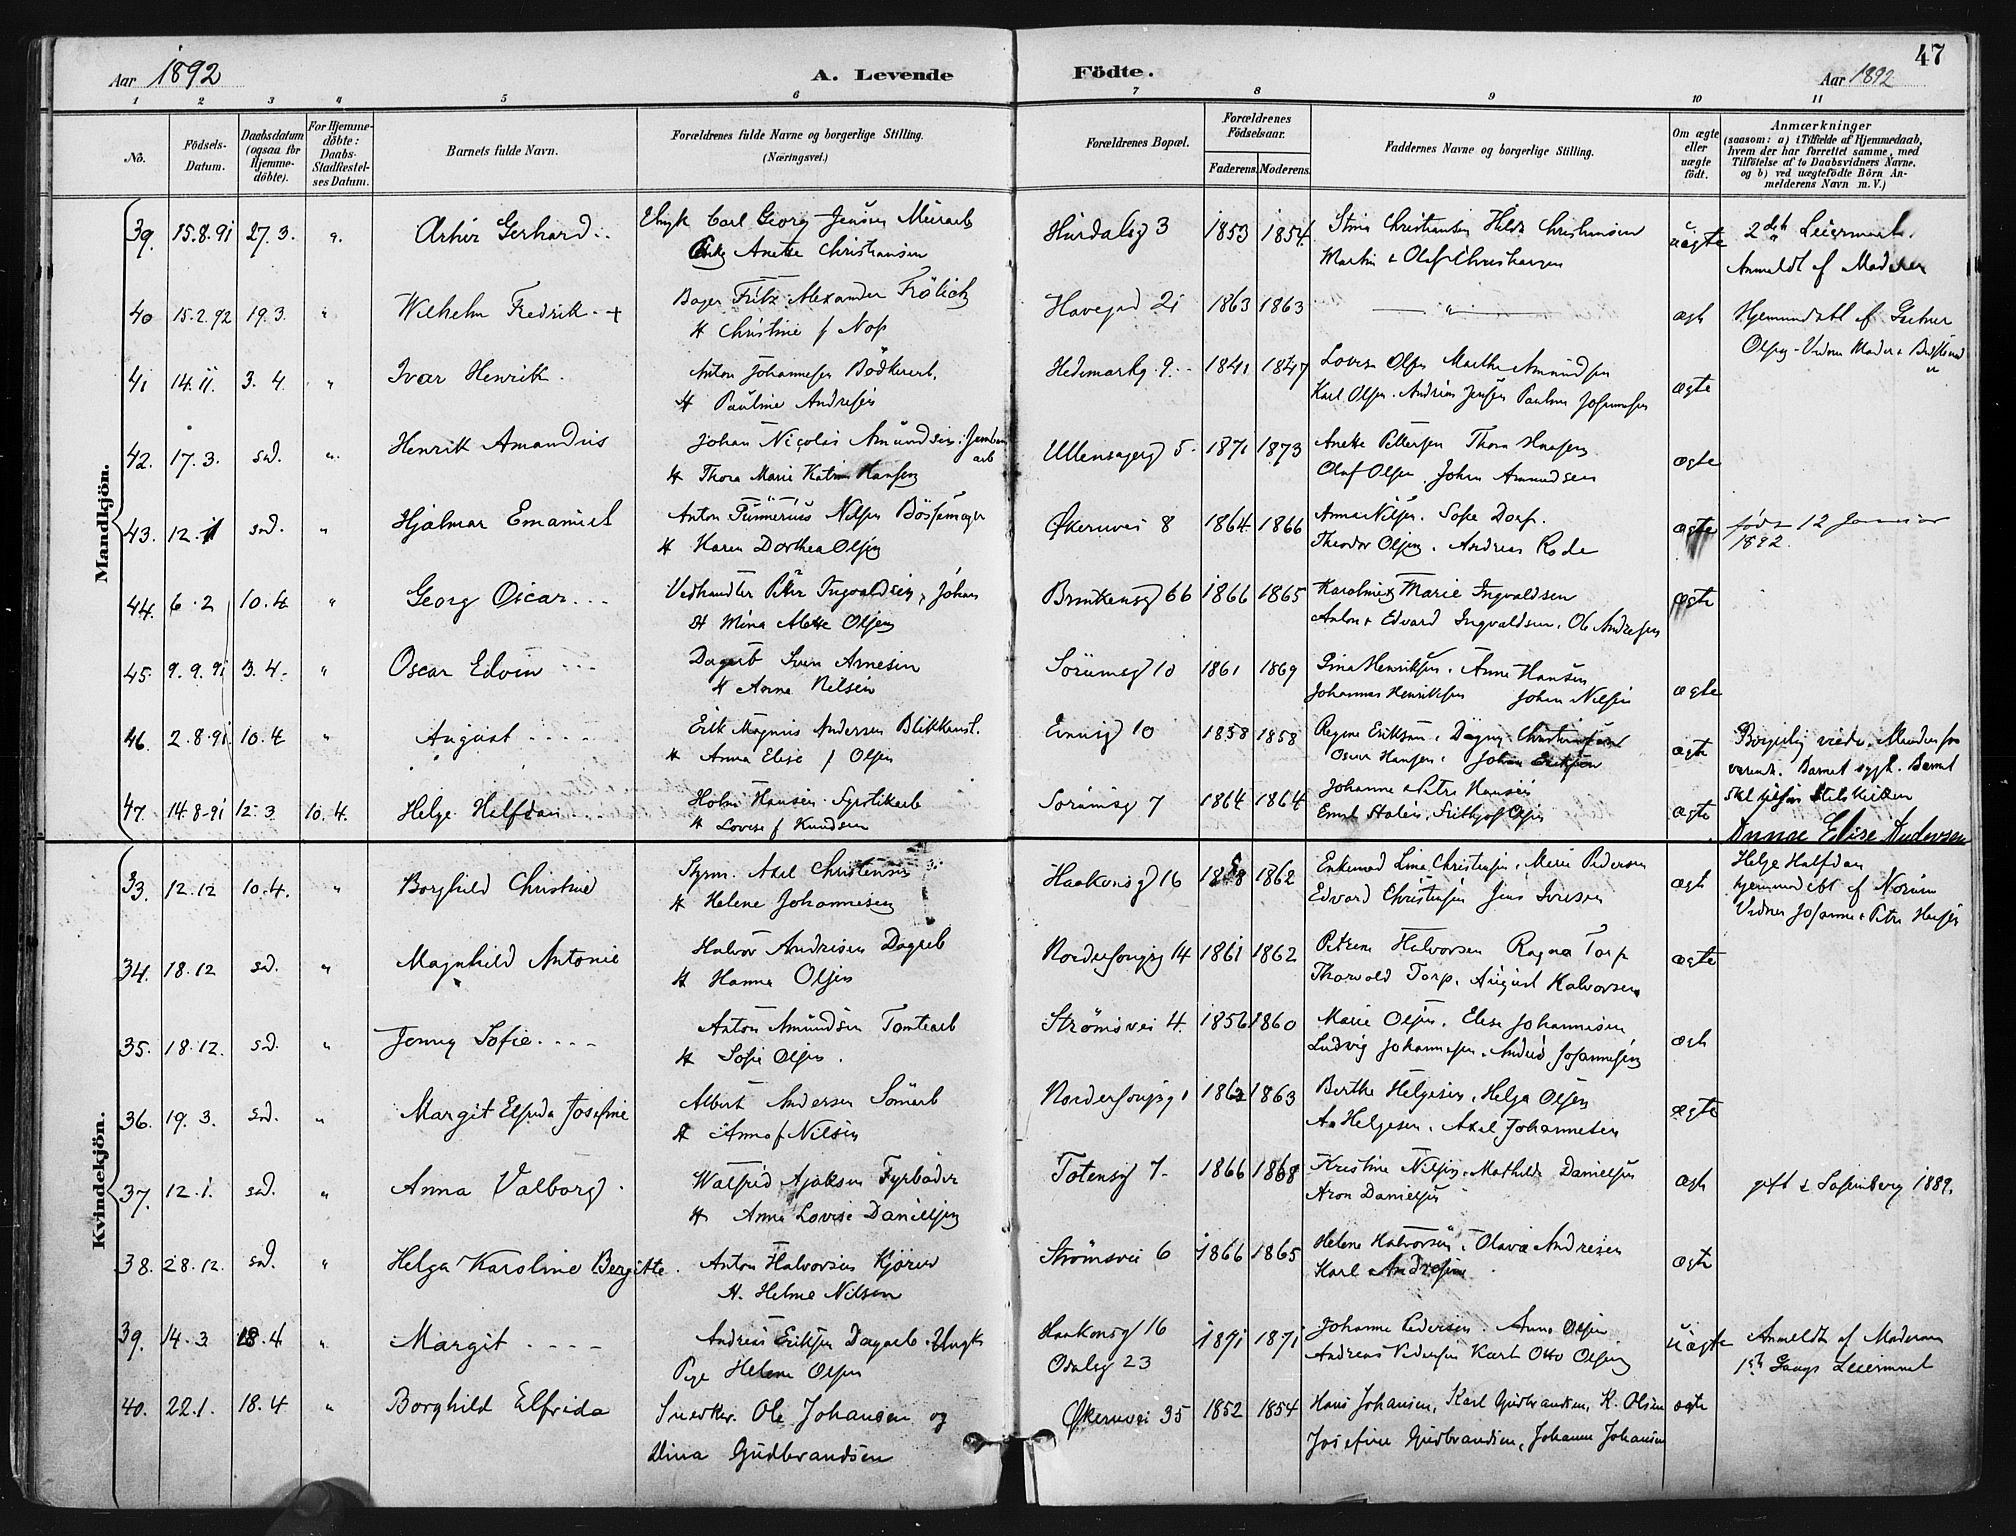 47
Aar 1892
A. Levende Födte.
Aar 1892
1 2 3 4 5 6 7 8 9 10 11
No.
Födsels-
Datum.
Daabsdatum
(ogsaa for
Hjemme-
döbte).
For Hjemme-
döbte:
Daabs-
Stadfæstel-
ses Datum.
Barnets fulde Navn.
Forældrenes fulde Navne og borgerlige Stilling.
(Næringsvei.)
Forældrenes Bopæl.
Forældrenes
Födselsaar.
Faderens. Moderens.
Faddernes Navne og borgerlige Stilling.
Om ægte
eller
uægte
födt.
Anmærkninger
(saasom: a) i Tilfælde af Hjemmedaab,
hvem der har forrettet samme, med
Tilföielse af to Daabsvidners Navne,
og b) ved uægtefödte Börn An-
melderens Navn m. V.)
Mandkjön.
39. 15.8.91 27.3. " Arthur Gerhard Ungk Carl Georg Jensen Murarb Hurdalsg 3 1853 1854 Stina Christiansen Hilda Christiansen uægte 2det Leiermaal.
Enke Anette Christiansen Martin & Olaf Christiansen Anmeldt af Moderen
40 15.2.92 19.3. " Wilhelm Fredrik + Bager Fritz Alexander Frölich Havegad 21 1863 1863 " ægte Hjemmedøbt af
H Christine f Olsen - Vidner Moder &
41 14.11. 3.4. " Ivar Henrik. Anton Johannesen Bödkerarb. Hedemarkg. 9. 1841 1847 Lovise Olsen Marthe Amundsen ægte
H Pauline Andresen Karl Olsen. Andreas Jensen Pauline Johannesen
42. 17.3. sad. " Henrik Amandus Johan Nicolai Amundsen Jernbanearb Ullensagerg 5 1871 1873 Anette Pettersen Thora Hansen ægte
H Thora Marie Katrine Hansen Olaf Olsen. Johan Amundsen
43. 12.1 sad. " Hjalmar Emanuel Anton Nilsen Bössemager Økernvei 8 1864 1866 Anna Nilsen. Sofie Dorf. ægte født 12 Januar
H Karen Dorthea Olsen Theodor Olsen. Andreas Rode 1892.
44. 6.2 10.4. " Georg Oscar Vedhandler Peter Ingvaldsen, Johan 66 1866 1865 Karoline & Marie Ingvaldsen ægte
H Mina Alette Olsen Anton & Edvard Ingvaldsen. Ole Andresen
45. 9.9.91 3.4. " Oscar Edvin Dagarb Sven Arnesen Sörumsg 10 1861 1869 Gina Henriksen. Anne Hansen ægte
H Anna Nilsen Johannes Henriksen Johan Nilsen
46. 2.8.91 10.4 " August Erik Magnus Andersen Blikkensl. 10 1858 1858 Regine Eriksen. Dagny Christiansen ægte Borgerlig viede. Manden fra
H Anna Elise f Olsen Oscar Hansen. Johan Eriksen værende. Barnet sygt. Barnet
47. 14.8.91 12.3 10.4. Helge Halfdan Holm Hansen. Fyrstikarb Sörumsg 7 1864 1864 Johanne & Petra Hansen ægte
H Lovise f Knudsen Emil Frithjof Olsen Anna Elise Andersen
Kvindekjön.
33. 12.12 10.4. " Borghild Christine Styrm. Axel Christensen Haakonsgd 16 1858 1862 Enkemad Lina Christensen. Marie Pedersen ægte Helge Halfdan
H Helene Johannesen Edvard Christensen Jens Iversen hjemmedøbt af Norum
Vidner Johanne & Petra Hansen
34. 18.12 sad. " Magnhild Antonie Halvor Andresen Dagarb 14 1861 1862 Petrine Halvorsen Ragna Torp ægte
H Hanna Olsen Thorvald Torp. August Halvorsen
35. 18.12. sad. " Jenny Sofie Anton Amundsen Tomtearb Strømsvei 4. 1856 1860 Marie Olsen. Elise Johannesen ægte
H Sofie Olsen. Ludvig Johannesen. Johannesen
36. 19.3. sad. " Margit Elfrida Josefine Albert Andersen 1 1862 1863 Berthe Helgesen. Helga Olsen ægte
H Anna f Nilsen A. Helgesen. Axel Johannesen
37. 12.1. sad. " Anna Valborg. Walfrid Fyrbøder Totensg 7. 1866 1868 Kristine Nilsen. Mathilde Danielsen ægte gift 1889.
H Anna Lovise Danielsen Aron Danielsen
38. 28.12. sad. " Helga Karoline Bergitte. Anton Halvorsen Kjører Strømsvei 6 1866 1865 Helene Halvorsen. Olava Andresen ægte
H. Helma Nilsen Karl Andresen
39. 14.3 18.4 " Margit Andreas Eriksen Dagarb. Ungk Haakonsgd 16 1871 1871 Johanne Pedersen. Anna Olsen uægte Anmeldt af Moderen
Pige Helene Olsen Odalsg 23 Andreas Pedersen Karl Otto Olsen 1ste Gangs Leiermaal
40. 22.1. 18.4 " Borghild Elfrida Snedker. Ole Johansen og Økernvei 35 1852 1854 Hans Johansen, Karl Gudbrandsen, K. Olsen ægte
Dina Gudbrandsen Josefine Gudbrandsen, Johanne Johansen